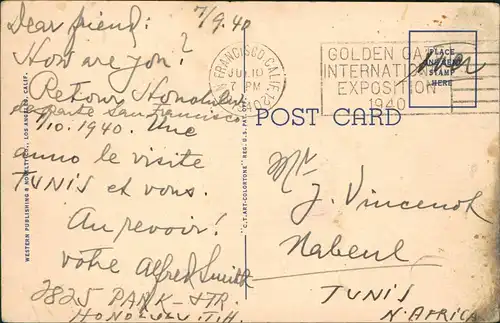 Dear friend: 7/9.40
How are you?
Retour Honolulu
departe San Francisco
/10.1940. Une
anno le visite
TUNIS et vous.
Au revoir!
votre Alfred Smith
2825 PARK-STR.
HONOLULU T.H.
WESTERN PUBLISHING & NOVELTY CO., LOS ANGELES, CALIF.
"C.T. ART-COLORTONE" REG. U.S. PAT. OFF.
SAN FRANCISCO, CALIF.
JUL 10
PM
1940
GOLDEN GATE
INTERNATIONAL
EXPOSITION
1940
PLACE
ONE CENT
STAMP
HERE
POST CARD
Mr
J. Vincenot
Nabeul
TUNIS
N. AFRICA